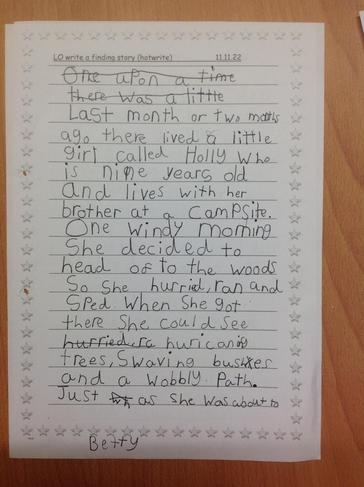 LO write a finding story (hotwrite) 11.11.22
One upon a time
there was a little
Last month or two months
ago there lived a little
girl called Holly who
is nine years old
and lives with her
brother at a campsite.
One windy morning
She decided to
head of to the woods
So She hurried, ran and
Sped. When She got
there She could See
hurried, ra huricanig
trees, Swaving bushes
and a wobbly Path.
Just as She was about to
Betty